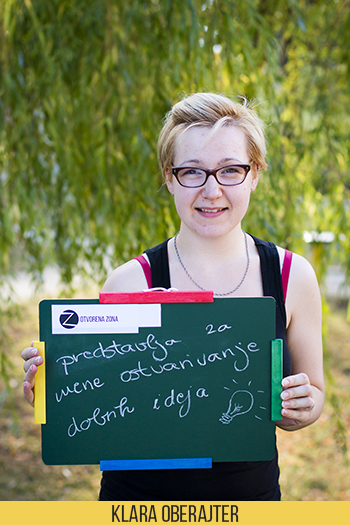 OTVORENA ZONA
predstavlja za
mene ostvarivanje
dobrih ideja
KLARA OBERAJTER